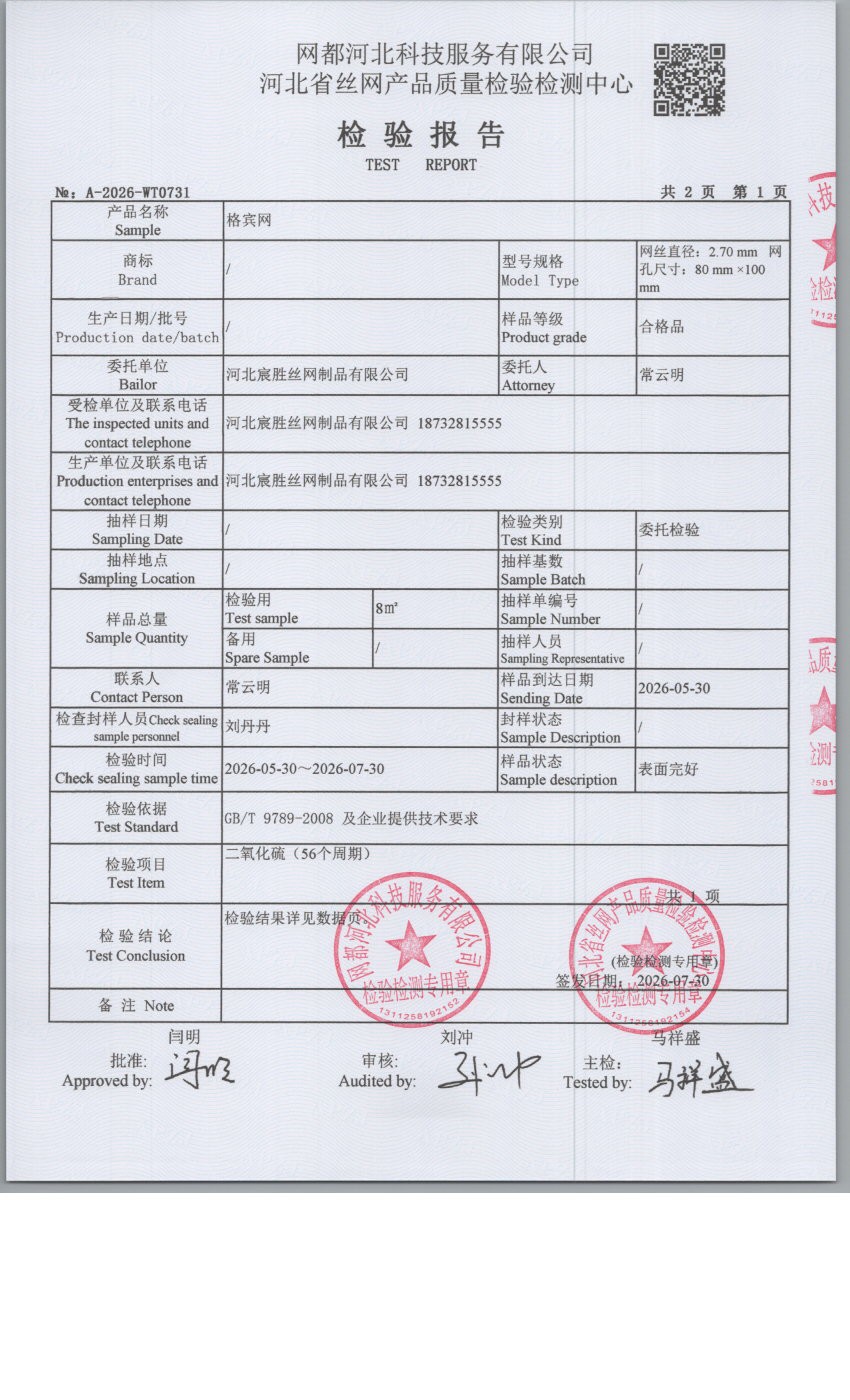 网都河北科技服务有限公司
河北省丝网产品质量检验检测中心
检 验 报 告
TEST REPORT
№: A-2026-WT0731
共 2 页 第 1 页
产品名称
Sample
格宾网
商标
Brand
/
型号规格
Model Type
网丝直径：2.70 mm 网
孔尺寸：80 mm ×100
mm
生产日期/批号
Production date/batch
/
样品等级
Product grade
合格品
委托单位
Bailor
河北宸胜丝网制品有限公司
委托人
Attorney
常云明
受检单位及联系电话
The inspected units and
contact telephone
河北宸胜丝网制品有限公司 18732815555
生产单位及联系电话
Production enterprises and
contact telephone
河北宸胜丝网制品有限公司 18732815555
抽样日期
Sampling Date
/
检验类别
Test Kind
委托检验
抽样地点
Sampling Location
/
抽样基数
Sample Batch
/
样品总量
Sample Quantity
检验用
Test sample
8㎡
抽样单编号
Sample Number
/
备用
Spare Sample
/
抽样人员
Sampling Representative
/
联系人
Contact Person
常云明
样品到达日期
Sending Date
2026-05-30
检查封样人员Check sealing
sample personnel
刘丹丹
封样状态
Sample Description
/
检验时间
Check sealing sample time
2026-05-30～2026-07-30
样品状态
Sample description
表面完好
检验依据
Test Standard
GB/T 9789-2008 及企业提供技术要求
检验项目
Test Item
二氧化硫（56个周期）
共 1 项
检 验 结 论
Test Conclusion
检验结果详见数据页。
(检验检测专用章)
签发日期： 2026-07-30
网都河北科技服务有限公司
检验检测专用章
1311258192152
河北省丝网产品质量检验检测中心
检验检测专用章
1311258192154
备 注 Note
闫明
刘冲
马祥盛
批准:
Approved by:
闫明
审核:
Audited by:
刘冲
主检:
Tested by:
马祥盛